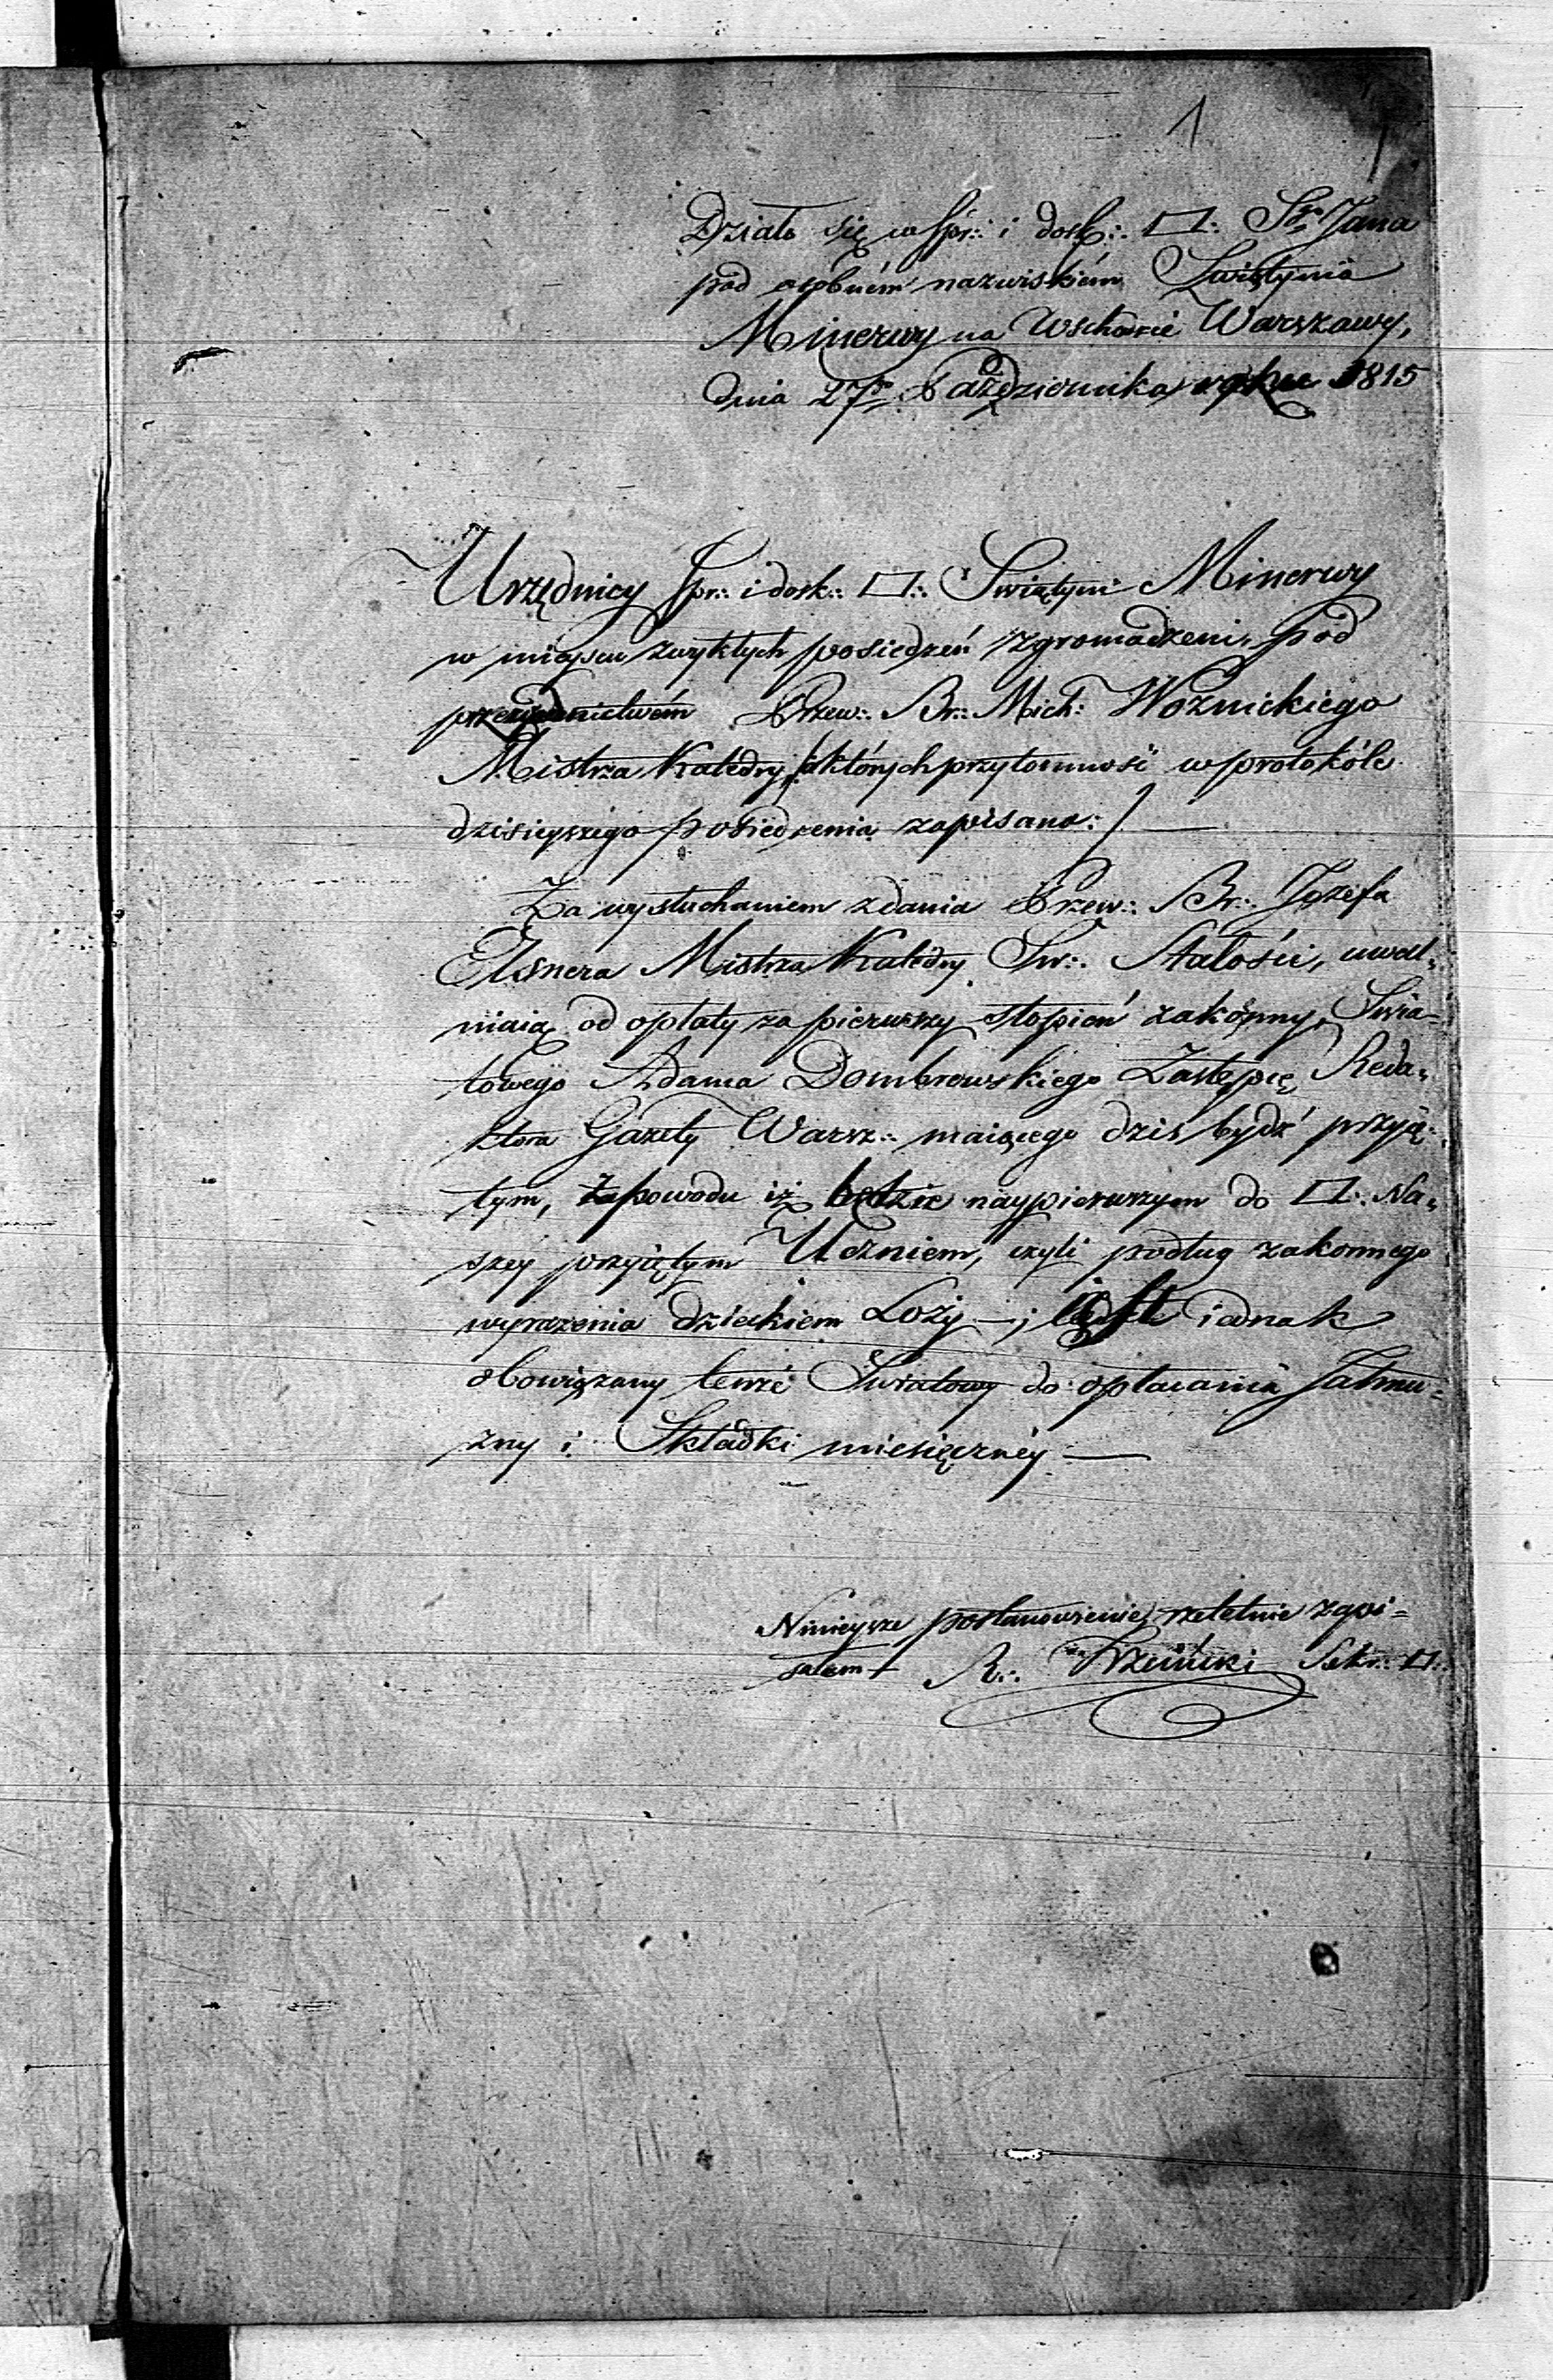 1
Działo się w Spr:. i dosk:. □:. Sgo Jana
pod osobném nazwiskiém Swiątynia
Minerwy na Wschodzie Warszawy,
dnia 27go Października roku 1815
Urzędnicy Spr:. i dosk:. □:. Swiątyni Minerwy
w mieyscu zwykłych posiedzeń zgromadzeni, pod
przewodnictwém Przew:. Br:. Mich: Woźnickiego
Mistrza Katedry /: których przytomność w protokóle
dzisieyszego posiedzenia zapisana :/ —
Za wysłuchaniem zdania Przew:. Br:. Józefa
Elsnera Mistrza Katedry Sw:. Stałości, uwal„
niaią od opłaty za pierwszy stopień zakonny, Swia-
towego Adama Dombrowskiego Zastępcę Reda„
ktora Gazety Warsz:. maiącego dziś bydź przyię„
tym, z powodu iż będzie naypierwszym do □:. Na„
szey przyiętym Uczniem, czyli podług zakonnego
wyrażenia dzieckiem Loży —; iest iednak
obowiązany tenże Swiatowy do opłacania Jałmu-
żny i Składki miesięcznéy —
Ninieysze postanowienie rzetelnie zapi=
sałem R:. Sekr:. □:.